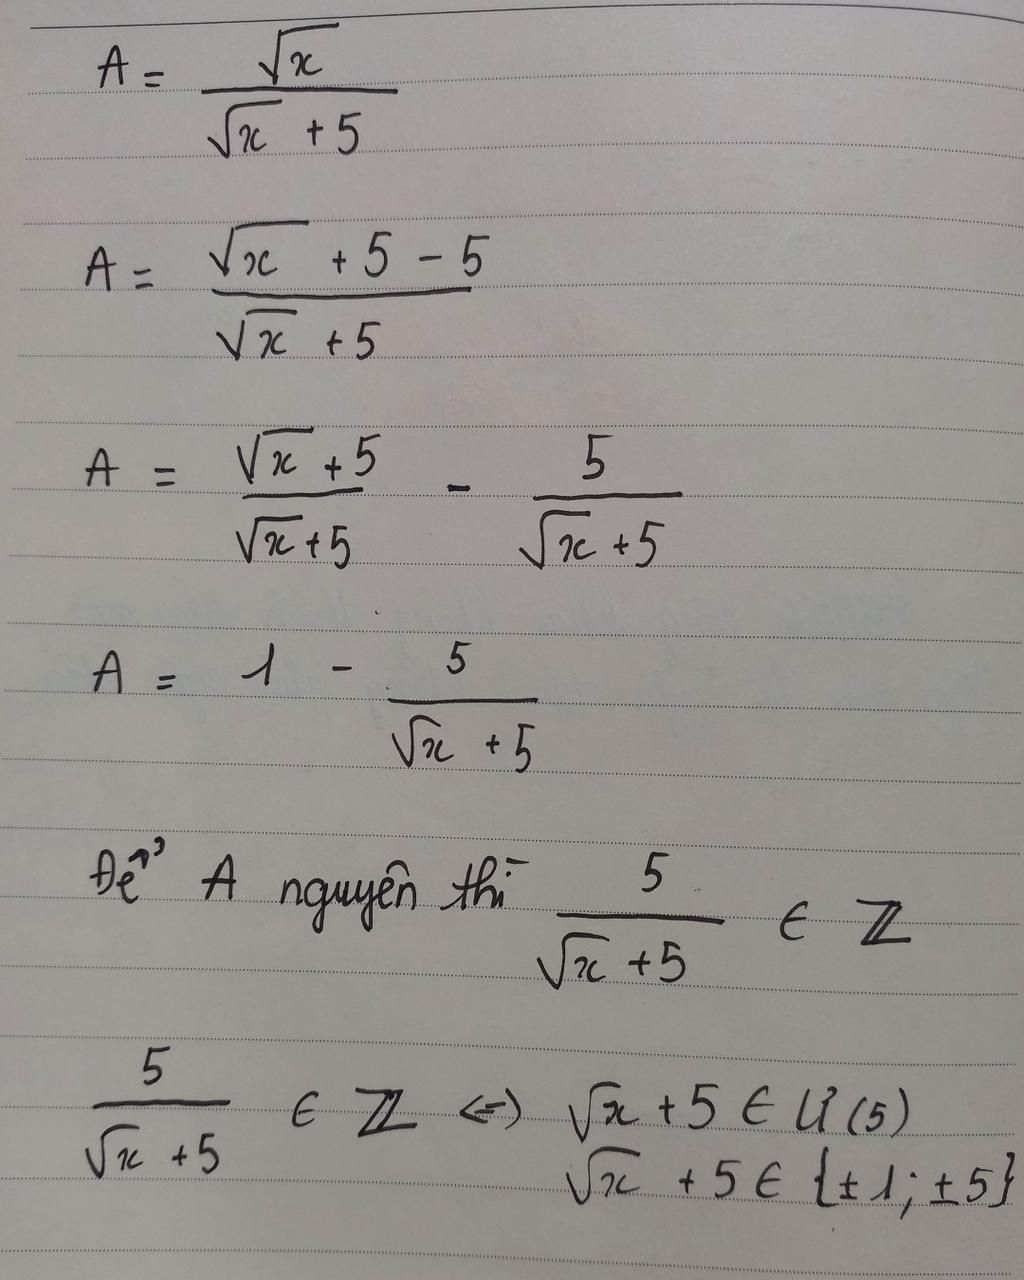 A = √x / (√x + 5)
A = (√x + 5 - 5) / (√x + 5)
A = (√x + 5) / (√x + 5) - 5 / (√x + 5)
A = 1 - 5 / (√x + 5)
Để A nguyên thì 5 / (√x + 5) ∈ ℤ
5 / (√x + 5) ∈ ℤ <=> √x + 5 ∈ Ư(5)
√x + 5 ∈ {±1; ±5}